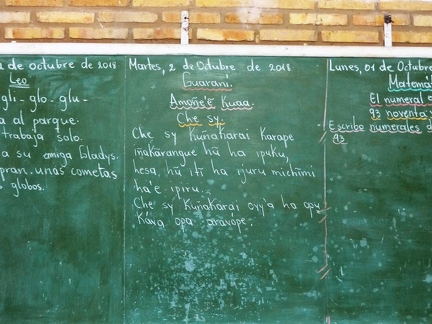 de Octubre de 2018
Leo
gli- glo- glu-
a al parque.
trabaja solo.
a su amiga Gladys.
pran unas cometas
globos.
Martes, 2 de Octubre de 2018
Guaraní.
Amoñe'ẽ kuaa.
Che sy.
Che sy Kuñakarai Karape
iñakãrangue hũ ha ipuku,
hesa hũ ha ijuru michĩmi
ha'e ipirũ.
Che sy Kuñakarai ovy'a ha
opa aravópe.
Lunes, 01 de Octubre
Matemá
El numeral
93 noventa y
Escribo numerales d
93